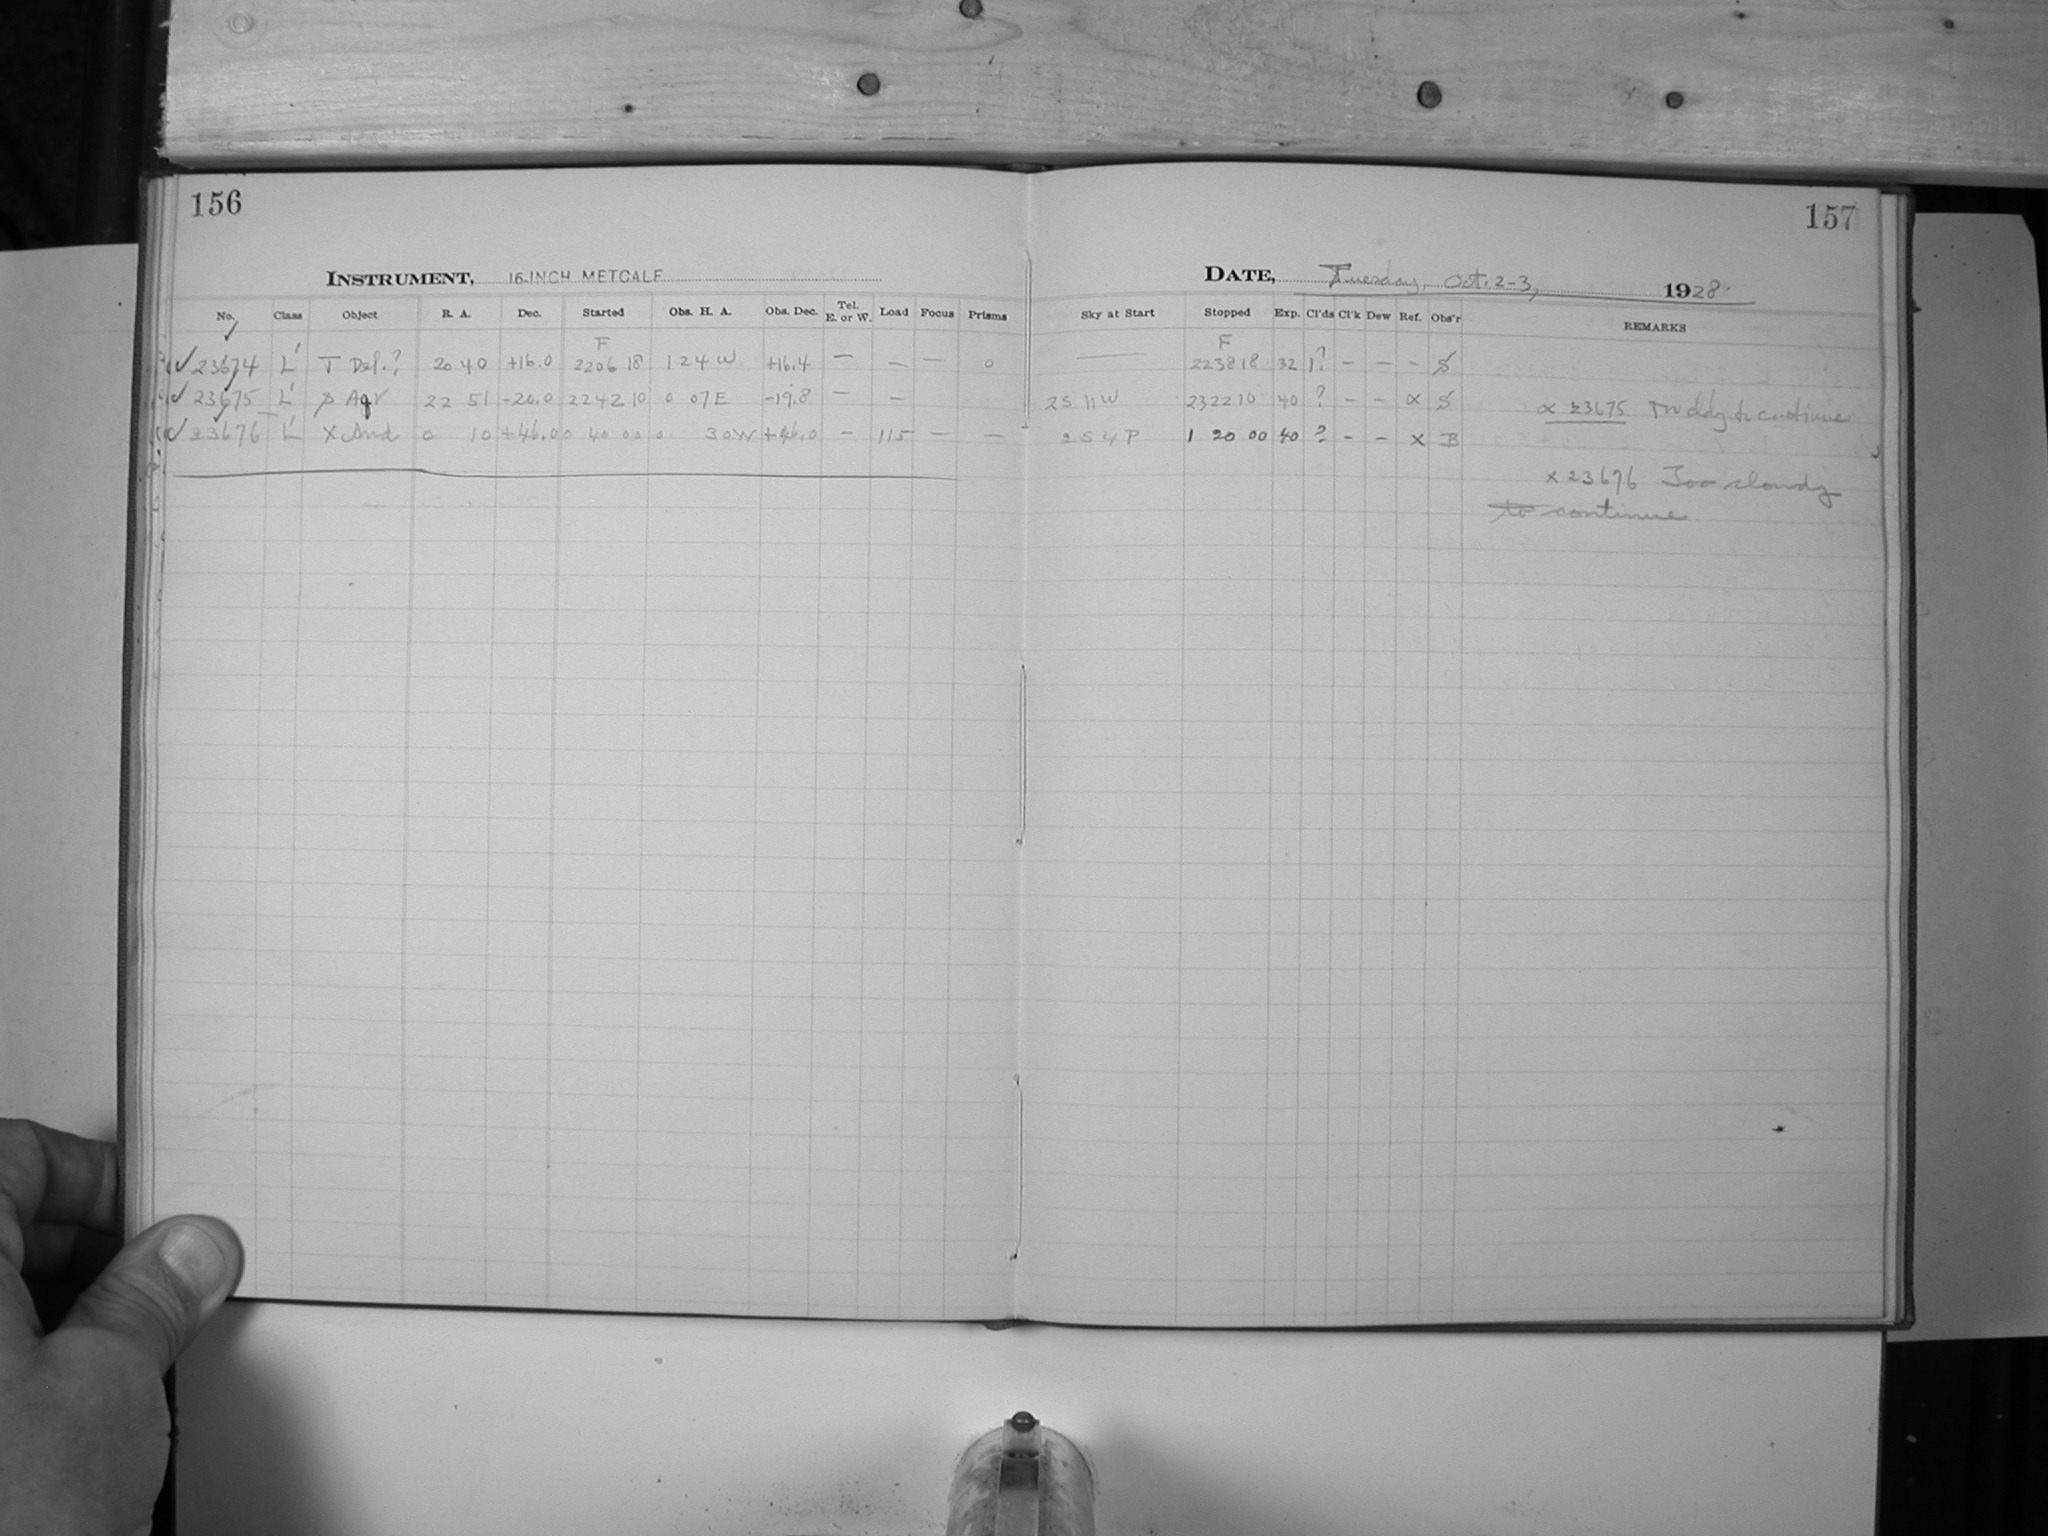 156
157
INSTRUMENT, 16-INCH METCALF
DATE, Tuesday, Oct. 2-3, 1928.
No. Class Object R. A. Dec. Started Obs. H. A. Obs. Dec. Tel. E. or W. Load Focus Prisms Sky at Start Stopped Exp. Cl'ds Cl'k Dew Ref. Obs'r REMARKS
F F
✓ 23674 L' T Del.? 20 40 +16.0 2206 18 1 24 W +16.4 — — — 0 — 2238 18 32 1? – – – S
✓ 23675 L' Aqr 22 51 -20.0 2242 10 0 07 E -19.8 — — 2S 11W 2322 10 40 ? – – α S
α 23675 to continue
✓ 23676 L' X And 0 10 +46.0 0 40 00 0 30W +46.0 – 115 – – 2S 4P 1 20 00 40 ? – – x B
x 23676 Too cloudy
to continue